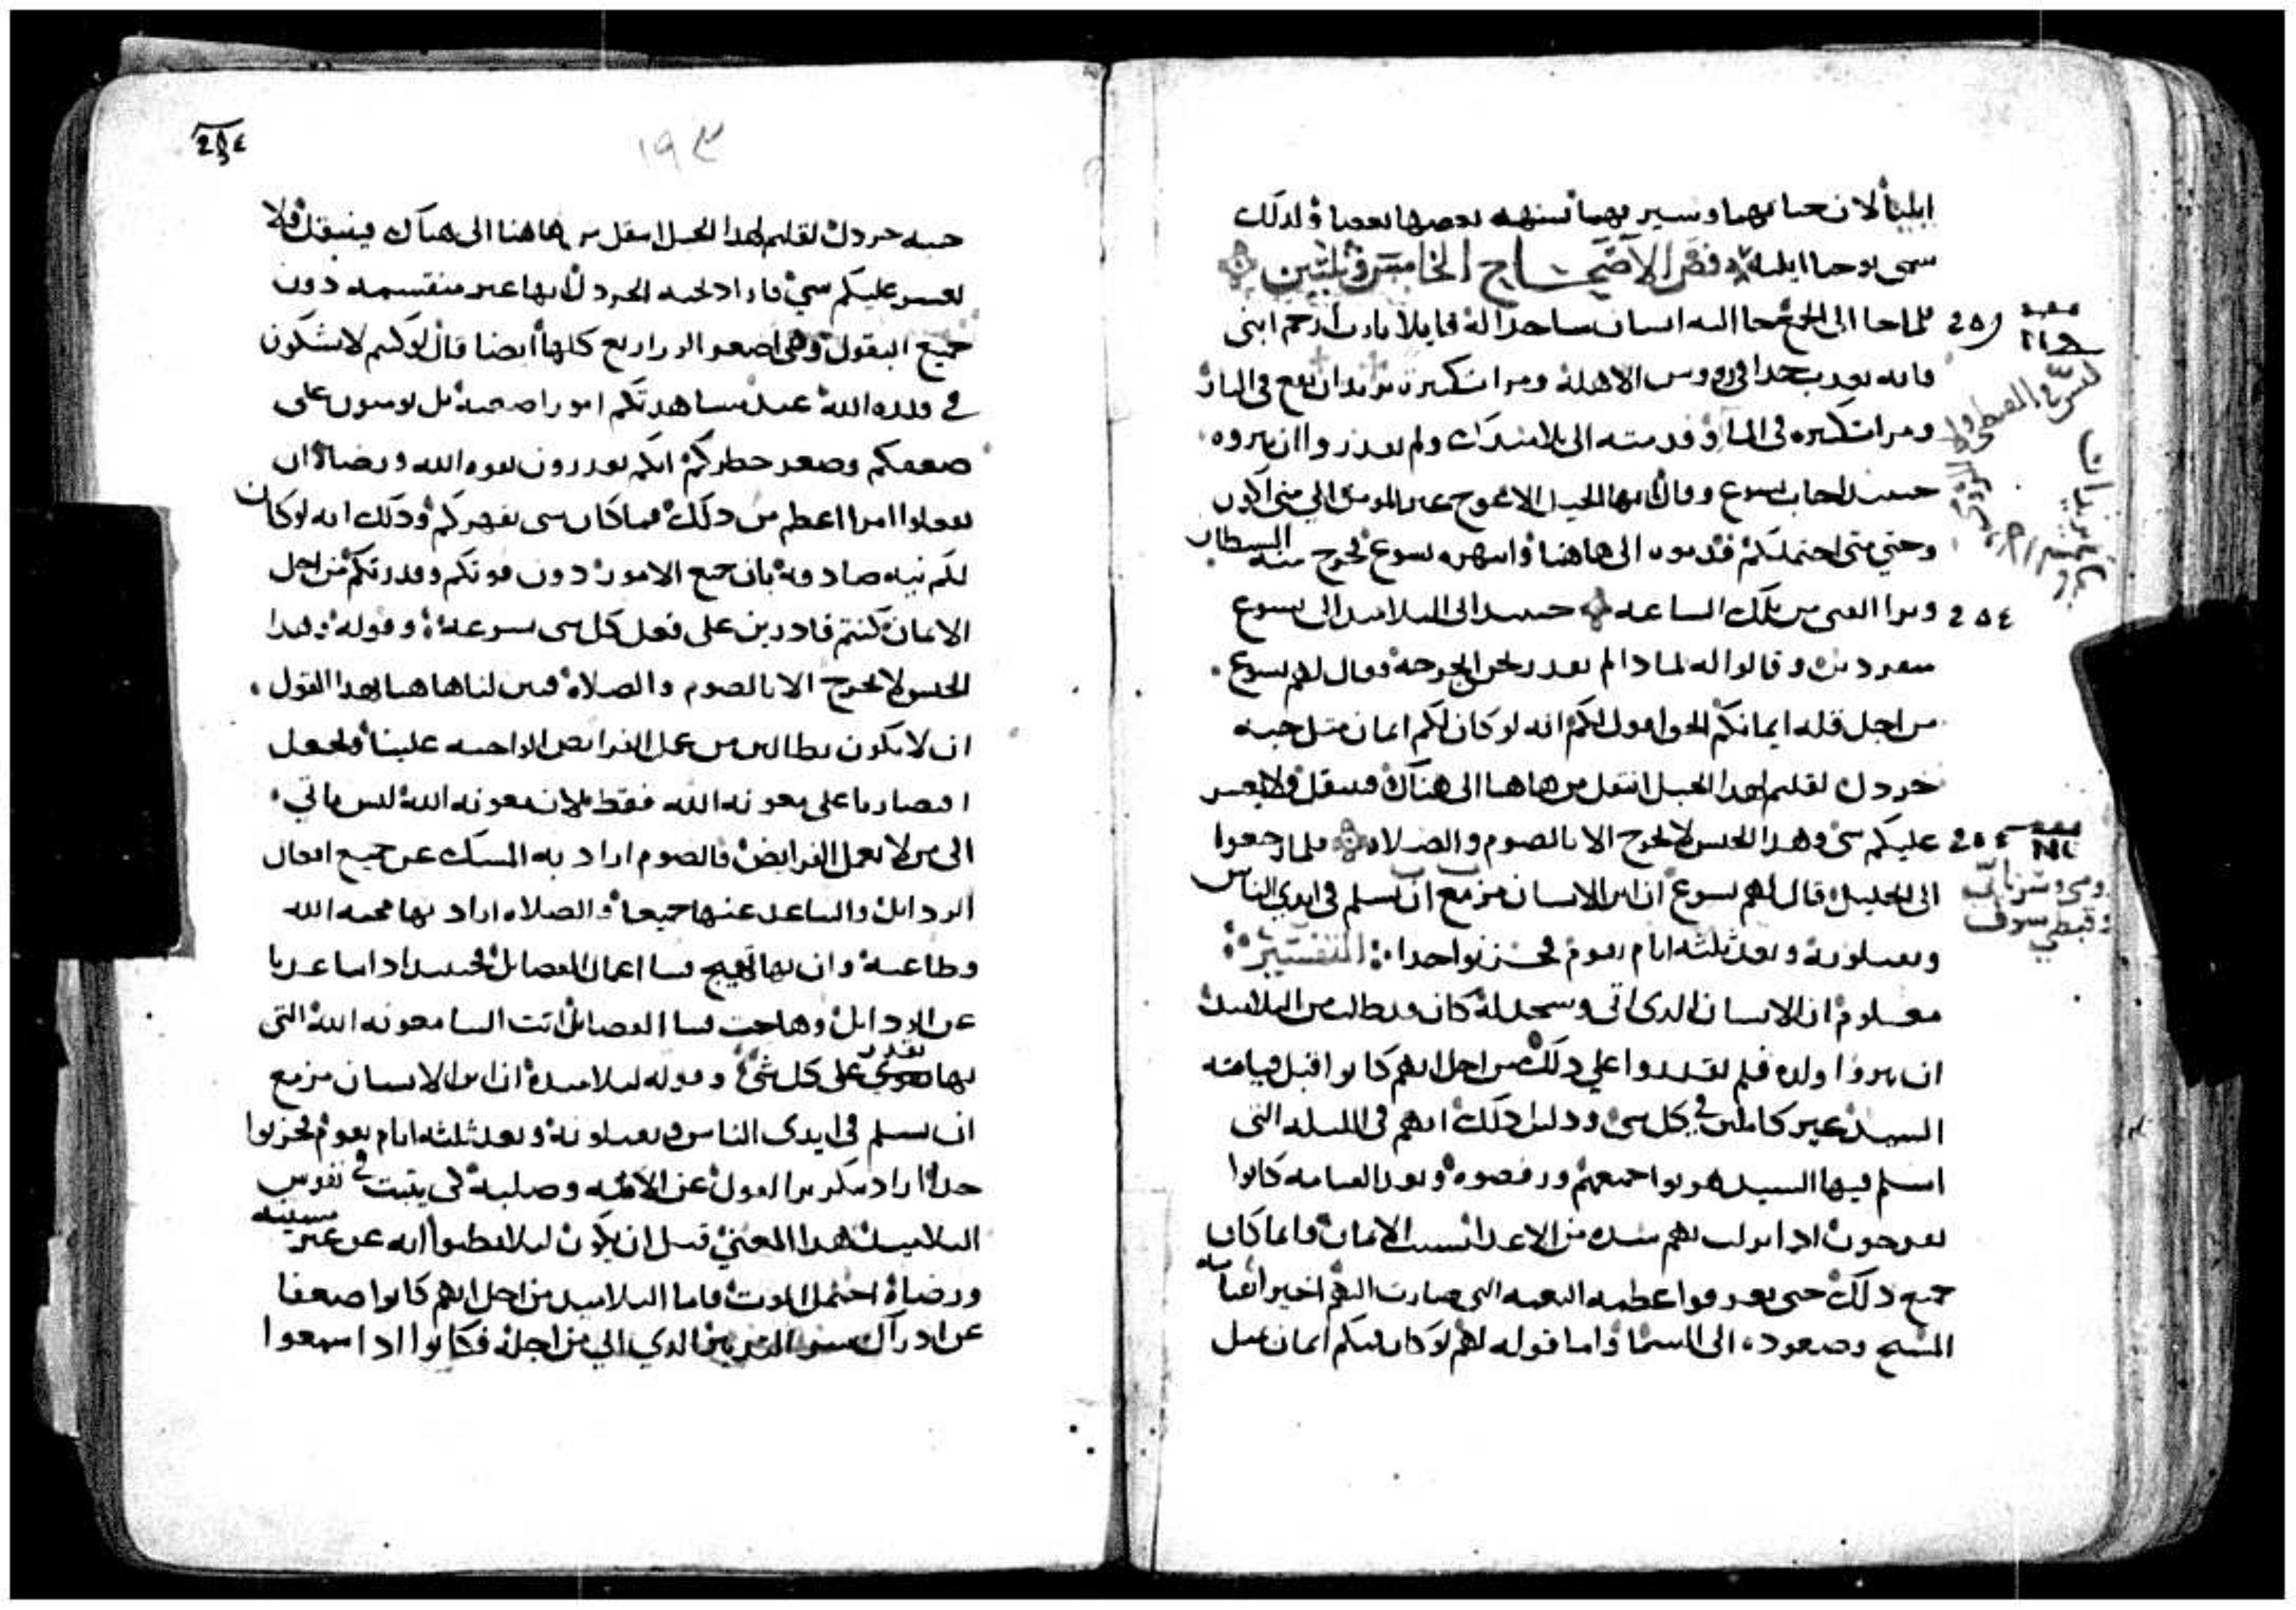 ايليا لان حياتهما وسيرتهما تشبه بعضها بعضا ولدلك
سمى يوحنا ايليا فض الاصحاح الخامس وثلثين
فلما جا الى الجمع جا اليه انسان ساجدا له قايلا يارب ارحم ابنى
فانه يعدب جدا فى رووس الاهلة ومرات كثيرة يريد ان يقع فى النار
ومرات كثيره فى الما وقدمته الى تلاميدك ولم يقدروا ان يبروه
حينيد اجاب يسوع وقال ايها الجيل الاعوج غير المومن الي متي اكون
وحتي متى احتملكم قدموه الى هاهنا وانتهره يسوع فخرج منه الشيطان
وبرا الفتى من تلك الساعه حينيد اتى التلاميد الى يسوع
منفردين وقالوا له لمادا لم نقدر نحن نخرجه فقال لهم يسوع
من اجل قله ايمانكم الحق اقول لكم انه لو كان لكم ايمان مثل حبه
خردل لقلتم لهدا الجبل انتقل من هاهنا الى هناك فينتقل ولا يعسر
عليكم شي وهدا الجنس لا يخرج الا بالصوم والصلاه فلما رجعوا
الى الجليل قال لهم يسوع ان ابن الانسان مزمع ان يسلم في ايدي الناس
ويقتلونه وبعد ثلثه ايام يقوم فحزنوا جدا التفسير
معلوم ان الانسان الدى اتى وسجد له كان قد طالب من التلاميد
ان يبروا ولده فلم يقدروا علي دلك من اجل انهم كانوا قبل قيامة
السيد غير كاملين في كل شي ودليل دلك انهم فى الليله التى
اسلم فيها السيد هربوا جميعهم ورفضوه وبعد القيامه كانوا
يفرحون ادا نزلت بهم شده من الاعدا بسبب الايمان فانما كان
جميع دلك حتى يعرفوا عظمه النعمه التى صارت اليهم اخيرا بقيامه
المسيح وصعوده الى السما واما قوله لهم لو كان لكم ايمان مثل
١٩٣
حبه خردل لقلتم لهدا الجبل انتقل من هاهنا الى هناك فينتقل ولا
يعسر عليكم شي فاراد بحبه الخردل انها غير منقسمه دون
جميع البقول وهى اصغر الزراريع كلها ايضا قال لوكنتم لا تشكون
في قدره الله عند مشاهدتكم امورا صعبة بل تومنون على
ضعفكم وصغر خطركم انكم تقدرون بقوه الله ورضاه ان
تفعلوا امرا اعظم من دلك فما كان شى يقهركم ودلك انه لو كان
لكم نيه صادقه بان جميع الامور دون قوتكم وقدرتكم من اجل
الايمان كنتم قادرين على فعل كل شى بسرعة وقوله وهدا
الجنس لا يخرج الا بالصوم والصلاه فبين لنا هاهنا بهدا القول
ان لا نكون بطالين من عمل الفرايض الواجبه علينا ونجعل
اقتصارنا على معونه الله فقط لان معونه الله ليس تاتي
الى من لا يعمل الفرايض فالصوم اراد به المسك عن جميع افعال
الردايل والتباعد عنها جميعا والصلاه اراد بها محبه الله
وطاعته وان بها تهيج فينا اعمال الفضايل فحينيد ادا تباعدنا
عن الردايل وهاجت فينا الفضايل اتت الينا معونه الله التى
بها نقدر على كل شي وقوله لتلاميده ان ابن الانسان مزمع
ان يسلم في ايدى الناس ويقتلونه وبعد ثلثه ايام يقوم فحزنوا
جدا اراد بتكرير القول عن الامه وصلبه كى يثبت في نفوس
التلاميد هدا المعنى قبل ان يكون ليلا يظنوا انه عن غير مشيته
ورضاه احتمل الموت فاما التلاميد من اجل انهم كانوا ضعفا
عن ادراك سر التدبير الدي اتى من اجله فكانوا ادا سمعوا